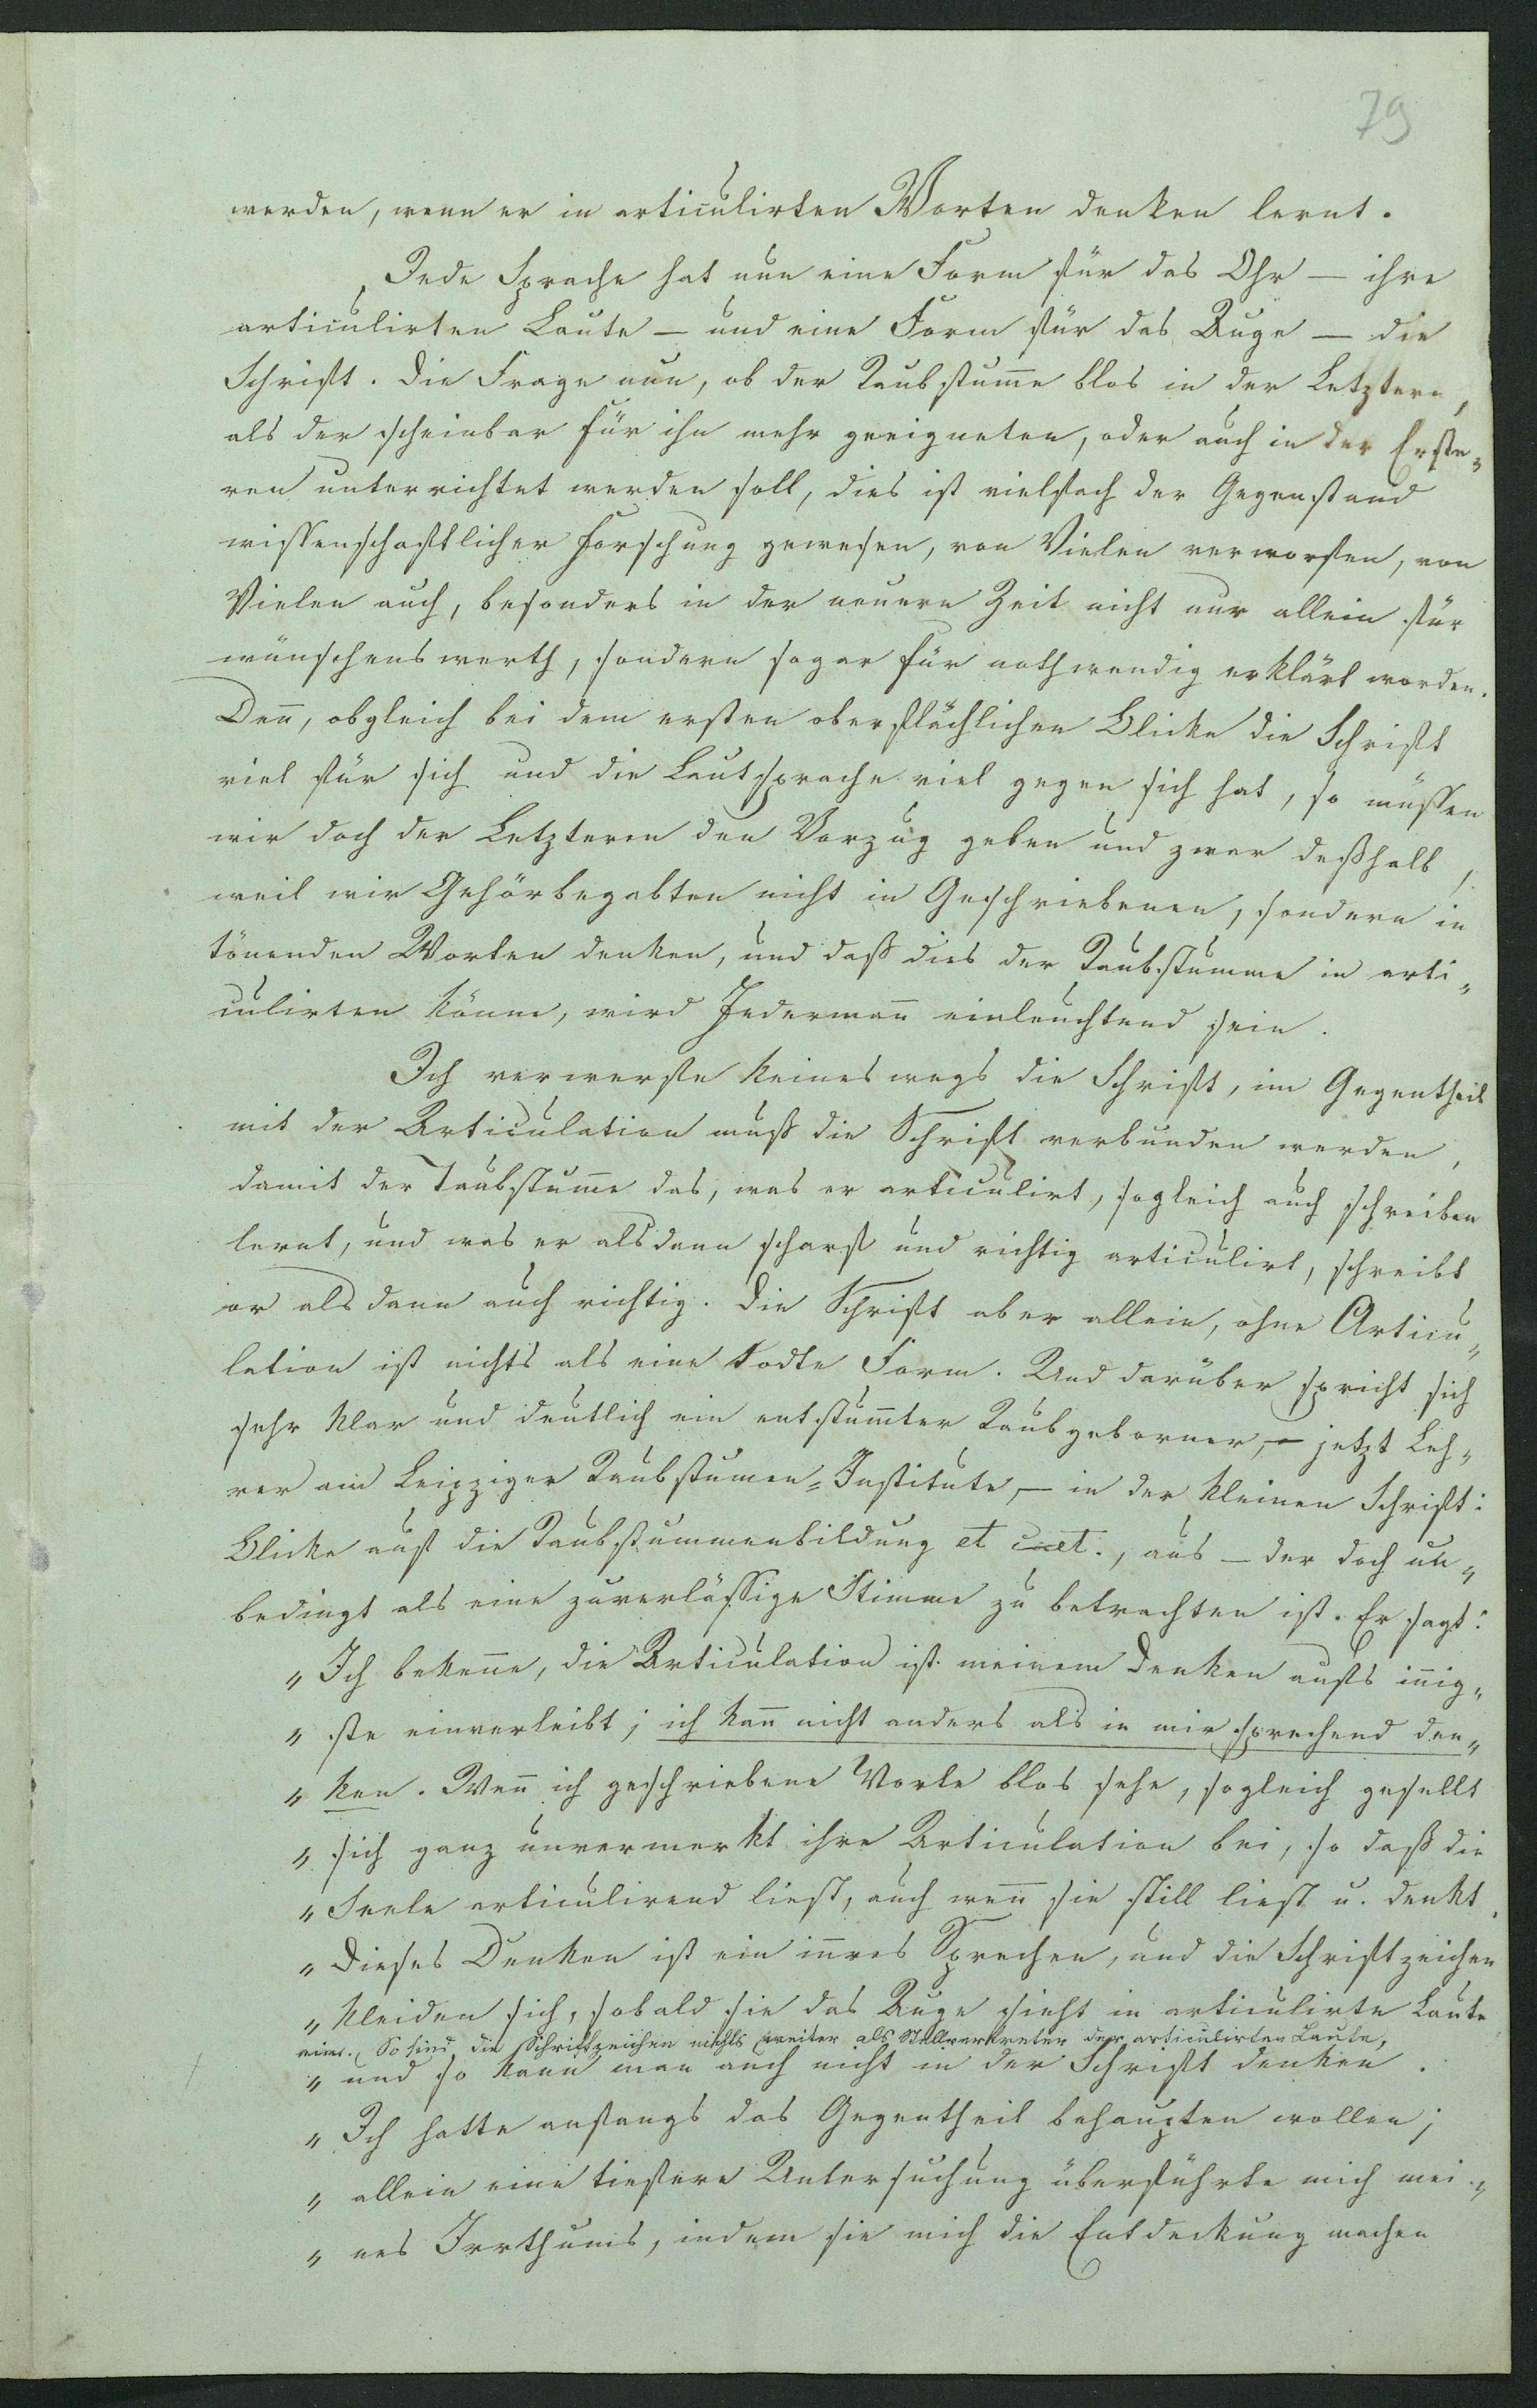 79
werden, wenn er in articulirten Worten denken lernt.
Jede Sprache hat nun eine Form für das Ohr — ihre
articulirten Laute — und eine Form für das Auge — die
Schrift. Die Frage nun, ob der Taubstum̅e blos in der Letztern,
als der scheinbar für ihn mehr geeigneten, oder auch in der Erste„
ren unterrichtet werden soll, dies ist vielfach der Gegenstand
wissenschaftlicher Forschung gewesen, von Vielen verworfen, von
Vielen auch, besonders in der neuern Zeit nicht nur allein für
wünschenswerth, sondern sogar für nothwendig erklärt worden.
Den̅, obgleich bei dem ersten oberflächlichen Blicke die Schrift
viel für sich und die Lautsprache viel gegen sich hat, so müssen
wir doch der Letzteren den Vorzug geben und zwar deßhalb,
weil wir Gehörbegabten nicht in Geschriebenen, sondern in
tönenden Worten denken, und daß dies der Taubstumme in arti„
culirten könne, wird Jederman̅ einleuchtend sein.
Ich verwerfe keineswegs die Schrift, im Gegentheil
mit der Articulation muß die Schrift verbunden werden,
damit der Taubstum̅e das, was er articulirt, sogleich auch schreiben
lernt, und was er alsdann scharf und richtig articulirt, schreibt
er alsdann auch richtig. Die Schrift aber allein, ohne Articu„
lation ist nichts als eine todte Form. Und darüber spricht sich
sehr klar und deutlich ein entstum̅ter Taubgeborner, — jetzt Leh„
rer am Leipziger Taubstumen-Institute, — in der kleinen Schrift:
Blicke auf die Taubstummenbildung et caet., aus — der doch un„
bedingt als eine zuverlässige Stimme zu betrachten ist. Er sagt:
„ Ich beken̅e, die Articulation ist meinem Denken aufs in̅ig„
„ ste einverleibt; ich kan̅ nicht anders als in mir sprechend den„
„ ken. Wen̅ ich geschriebene Worte blos sehe, sogleich gesellt
„ sich ganz unvermerkt ihre Articulation bei, so daß die
„ Seele articulirend liest, auch wen̅ sie still liest u. denkt.
„ Dieses Denken ist ein in̅res Sprechen, und die Schriftzeichen
„ kleiden sich, sobald sie das Auge sieht in articulirte Laute
ein. So sind die Schriftzeichen nichts weiter als Stellvertreter der articulirten Laute,
„ und so kann man auch nicht in der Schrift denken.
„ Ich hatte anfangs das Gegentheil behaupten wollen;
„ allein eine tiefere Untersuchung überführte mich mei„
„ nes Irrthums, indem sie mich die Entdeckung machen